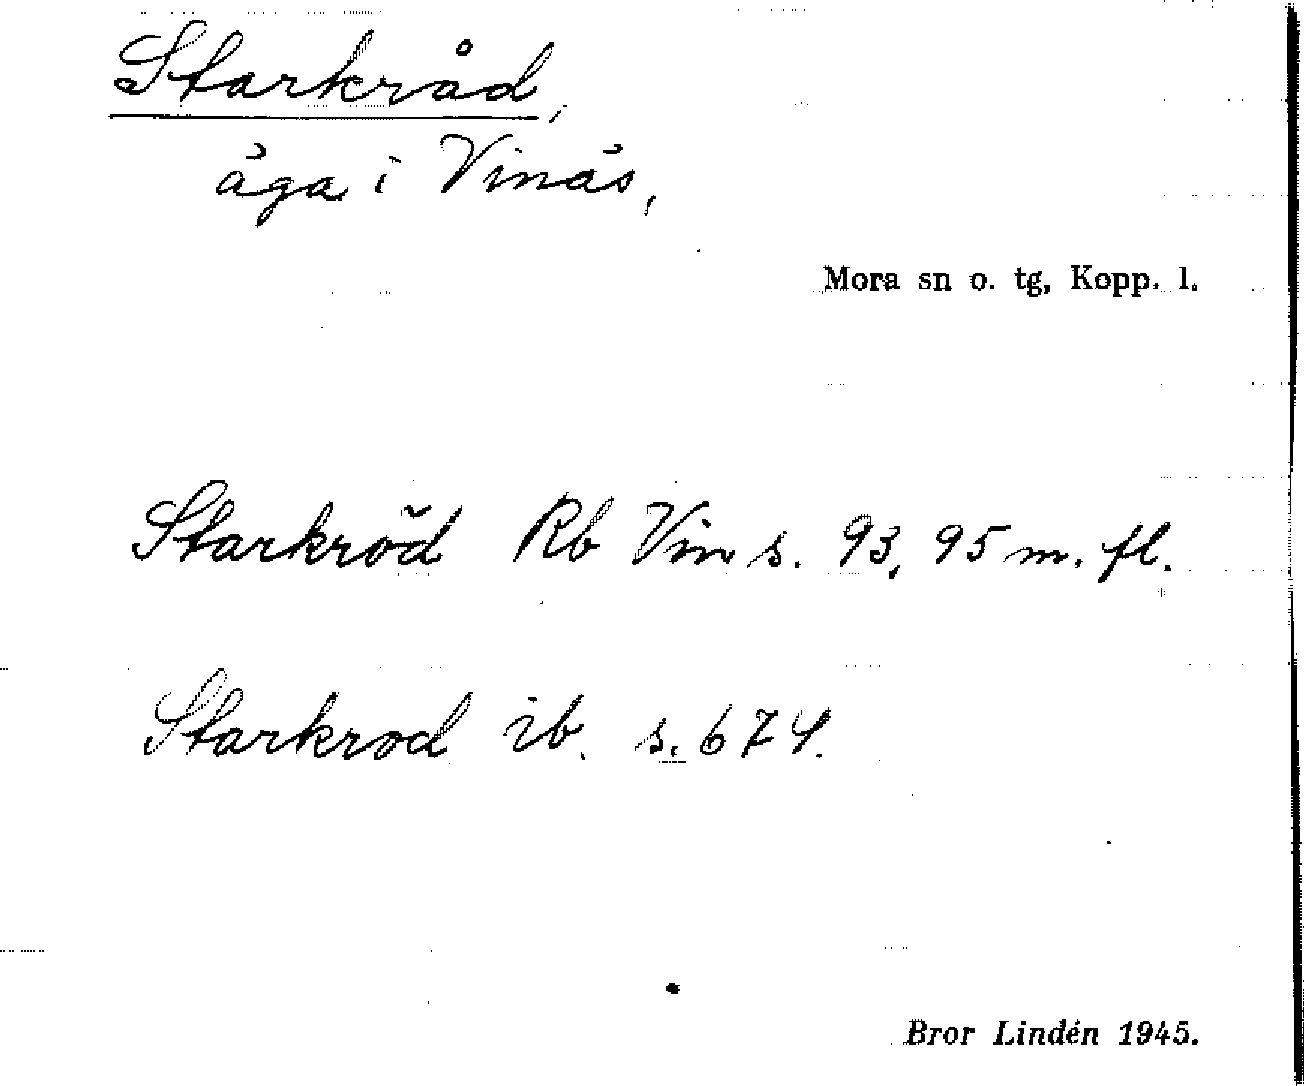 Starkråd,
åga i Vinås,
Mora sn o. tg, Kopp. l.
Starkröd Rb Vin s. 93, 95 m. fl.
Starkrod ib. s. 674.
Bror Lindén 1945.